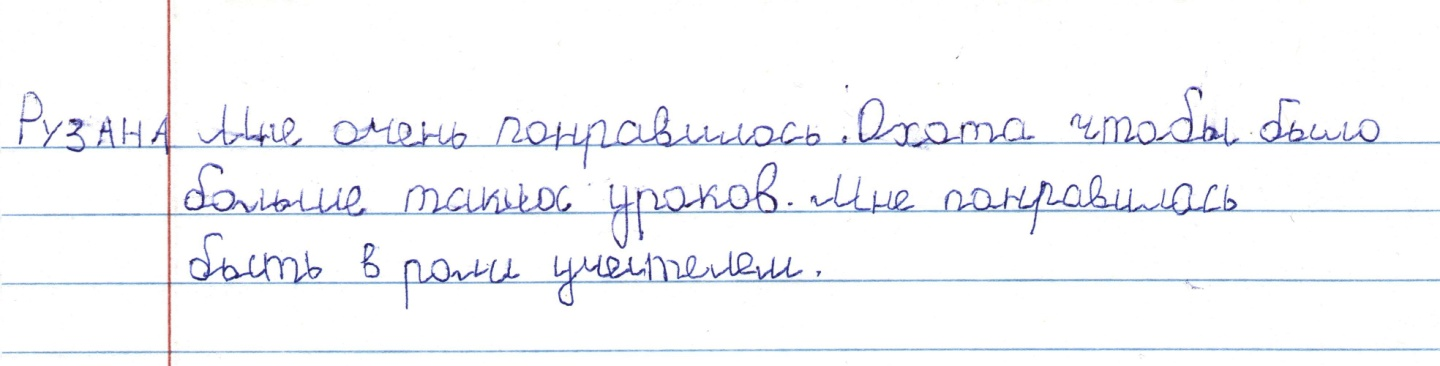 РУЗАНА Мне очень понравилось. Охота чтобы было
больше таких уроков. Мне понравилась
быть в роли учителем.